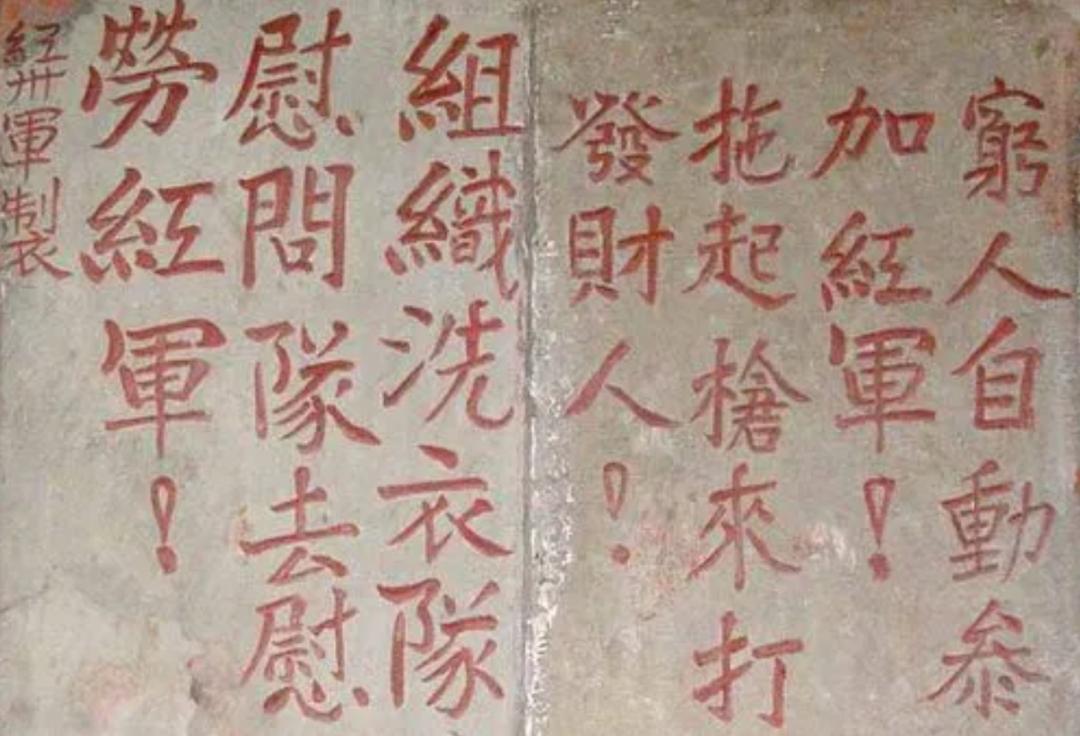 窮人自動叅
加紅軍！
拖起槍來打
發財人！
組織洗衣隊
慰問隊去慰
勞紅軍！
紅卅軍製